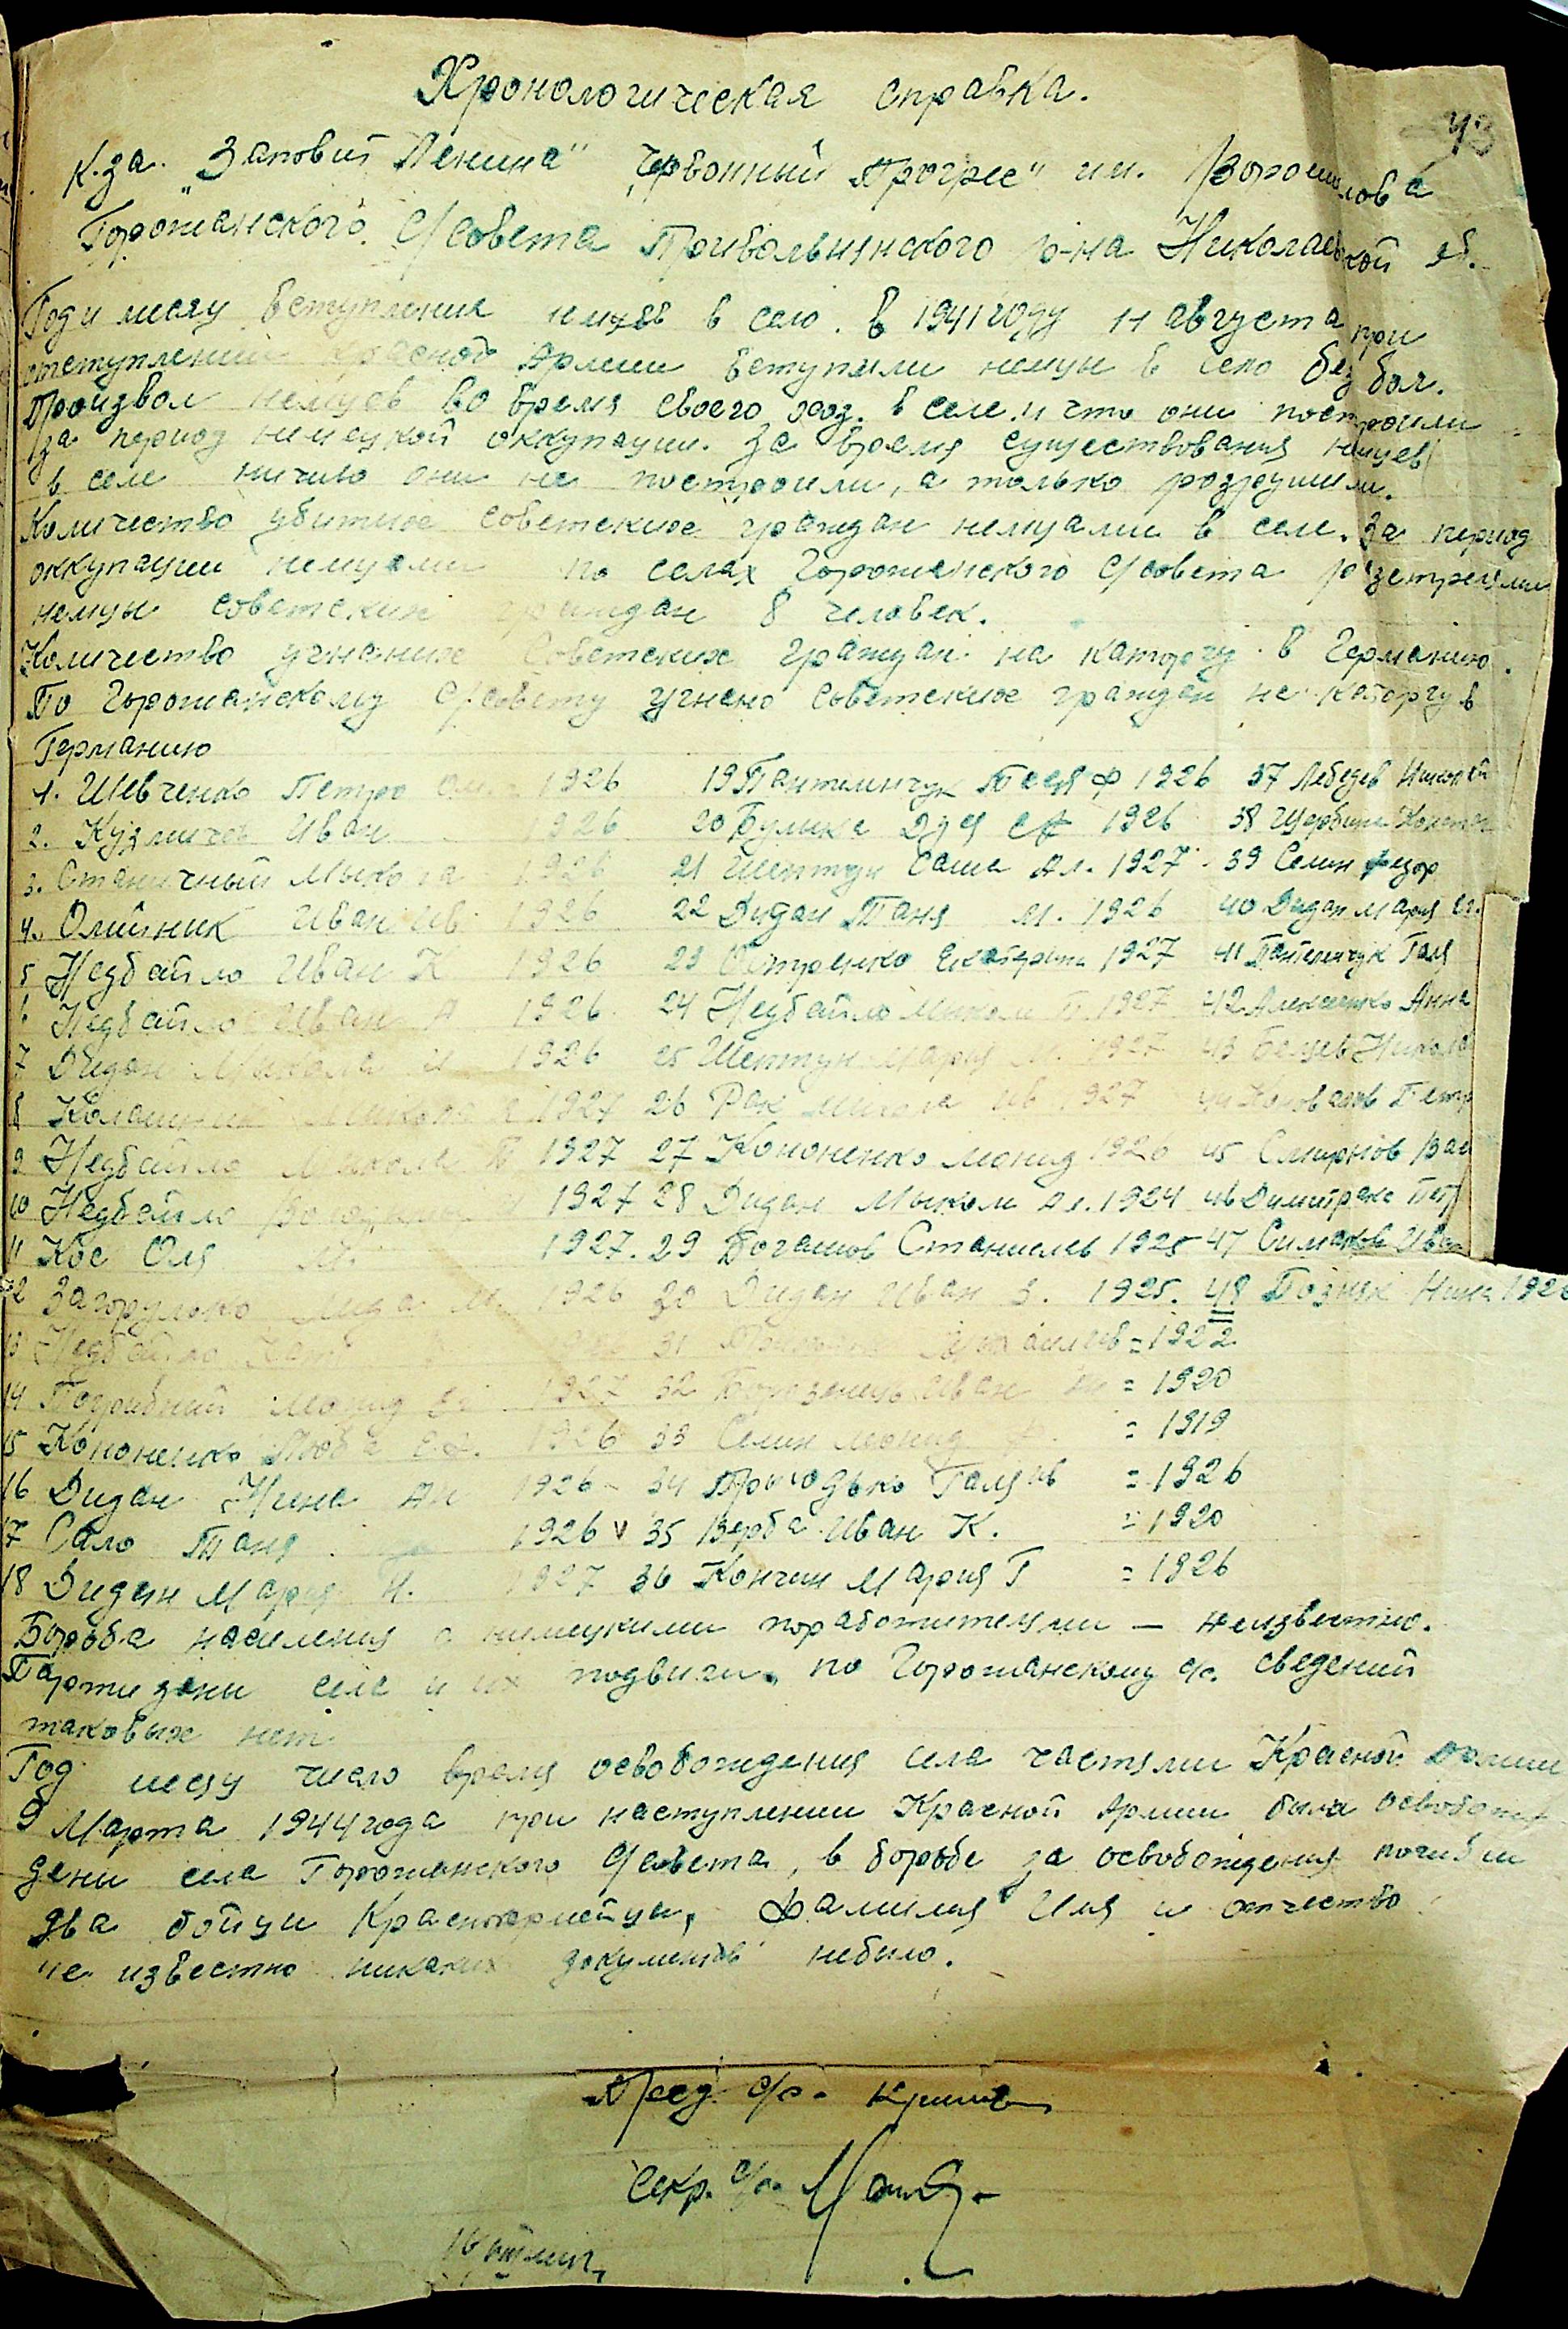 43
Хронологическая справка.
К-за. "Заповит Ленина" "Червонный Прогрес" им. Ворошилова
Горожанского С/совета Привольнянского р-на Николаевской об.
Год и месяц вступления немцев в село. В 1941 году 11 августа при
отступлении красной Армии вступили немцы в село без боя.
Произвол немцев во время своего хоз. в селе и что они построили
за период немецкой оккупации. За время существования немцев
в селе ничего они не построили, а только разрушили.
Количество убитых советских граждан немцами в селе. За период
оккупации немцами по селах Горожанского С/совета розстреляли
немцы советских граждан 8 человек.
Количество угнаних Советских граждан на каторгу в Германию.
По Горожанскому С/совету угнано советских граждан на каторгу в
Германию
1. Шевченко Петро 1926 19 Пантелийчук Тася Ф 1926 37 Лебедев Николай
2. Кузмичов Иван 1926 20 Булика 1926 38 Щербина
3. Станичный Мыкола 1926 21 Шептун Саша Ал. 1927 - 39 Селин
4. Олийник Иван Ив 1926 22 Дидан Таня М. 1926 40 Дидан Мария
5 Недбайло Иван К 1926 23 Петренко Екатерина 1927 41 Пантелийчук Галя
6 Недбайло Иван А 1926 24 Недбайло Микола П. 1927 42 Алексеенко Анна
7 Дидан Микола 1926 25 Шептун Мария М. 1927 43 Никола
8 Микола 1927 26 Рак Микола Ив 1927 44 Коновалов Петр
9 Недбайло Микола П 1927 27 Кононенко Леонид 1926 45 Смирнов Вас
10 Недбайло 1927 28 Дидан Мыкола Ал. 1924 46 Петр
11 Кос Оля М. 1927. 29 Богашов Станислав 1925 47 Симаков Иван
12 Загорулько Лида М. 1926 30 Дидан Иван З. 1925. 48 Позняк Нина 1926
13 Недбайло 31 = 1922
14 Подрибний Леонид 1927 32 Иван = 1920
15 Кононенко Люба 1926 33 Селин Леонид = 1919
16 Дидан Нина Ан 1926 - 34 Приходько Галя Ив = 1926
17 Сало Таня 1926 v 35 Верба Иван К. = 1920
18 Дидан Мария Н. 1927 36 Кончин Мария Г = 1926
Борьба населения с немецкими поработителями — неизвестно.
Партизаны села и их подвиги. по Горожанскому с/с. сведений
таковых нет.
Год месяц число время освобождения села частями Красной Армии
9 Марта 1944 года при наступлении Красной Армии были освобож
дены села Горожанского С/совета, в борьбе за освобождения погибли
два бойци Красноармейци, Фамилия Имя и отчество
не известно никаких документов небыло.
Пред. с/с.
Секр. с/с.